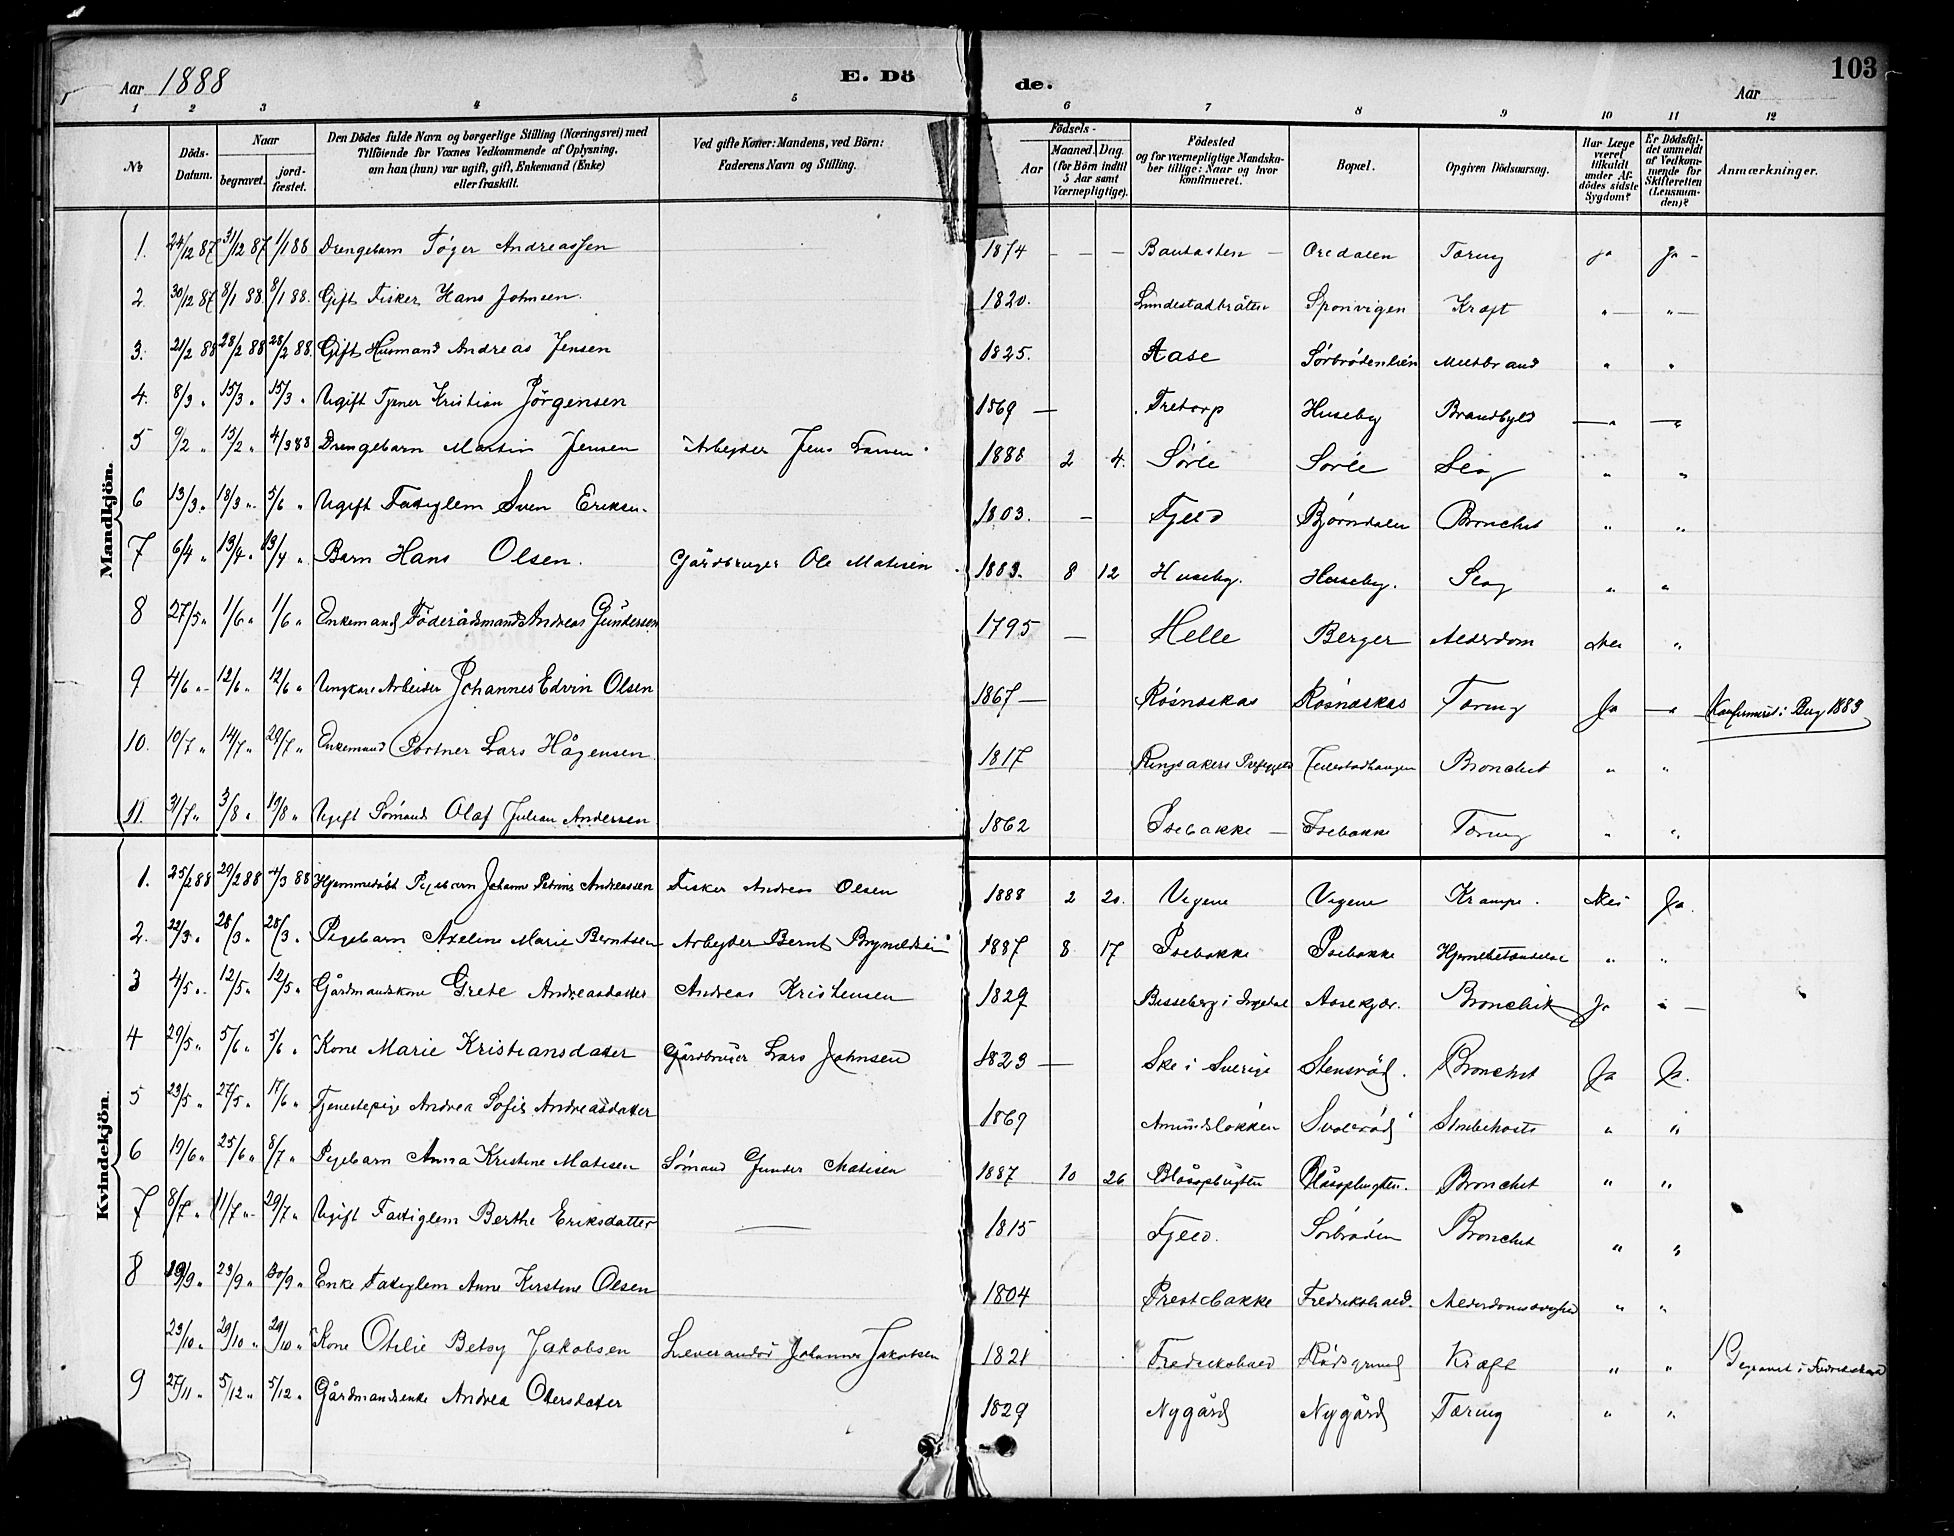 Aar 1888
E. Dö
de.
Aar
103
1 2 3 4 5 6 7 8 9 10 11 12
№
Döds-Datum.
Naar
begravet.
jord-fæstet.
Den Dödes fulde Navn og borgerlige Stilling (Næringsvei) med
Tilföiende for Voxnes Vedkommende af Oplysning,
om han (hun) var ugift, gift, Enkemand (Enke)
eller fraskilt.
Ved gifte Koner: Mandens, ved Börn:
Faderens Navn og Stilling.
Födsels-
Aar
Maaned. Dag.
(for Börn indtil
5 Aar samt
Værnepligtige).
Födested
og for værnepligtige Mandska-
ber tillige: Naar og hvor
konfirmeret.
Bopæl.
Opgiven Dödsaarsag.
Har Læge
været
tilkaldt
under Af-
dödes sidste
Sygdom?
Er Dödsfal-
det anmeldt
af Vedkom-
mende for
Skifteretten
(Lensman-
den)?
Anmærkninger.
Mandkjön.
1. 24/12 87 31/12 87 1/1 88 Drengebarn Töger Andreassen 1874 - - - Bautasten - Oredalen Tæring ja Ja -
2. 30/12 87 8/1 88. 8/1 88. Gift Fisker Hans Johnsen. 1820. Lundestadbråten Sponvigen Kræft " "
3. 21/2 88 28/2 88 28/2 88. Gift Husmand Andreas Jensen 1825. Aase Sörbrödenlien Miltbrand " "
4. 8/3 " 15/3 " 15/3 " Ugift Tjener Kristian Jörgensen 1869 — Tretorp Huseby Brandbyld " "
5 9/2 " 15/2 " 4/3 88 Drengebarn Martin Jensen Arbejder Jens 1888 2 4. Sörle Sörle Slag " "
6 13/3 " 18/3 " 5/6 " Ugift Fattiglem Sven Eriksen. 1803. - Fjeld Björndalen Bronchit " "
7 6/4 " 13/4 " 13/4 " Barn Hans Olsen. Gårdbruger Ole Matisen 1883. 8 12 Huseby. Huseby. Slag " "
8 27/5 " 1/6 " 1/6 " Enkemand Föderådsmand Andreas Gundersen 1795 — Helle Berger Alderdom Nei "
9 4/6 " 12/6 " 12/6 " Ungkarl Arbeider Johannes Edvin Olsen 1867 — Rösnæskas Rösnæskas Tæring Ja " Konfirmeret i Berg 1883
10. 10/7 " 14/7 " 29/7 " Enkemand Portner Lars Hågensen 1817 Ringsakers Prestegjeld Bronchit " "
11. 31/7 " 3/8 " 19/8 " Ugift Sömand Olaf Julian Andersen 1862 Isebakke — Isebakke Tæring " "
Kvindekjön.
1. 25/2 88 29/2 88 4/3 88 Hjemmedöbt Pigebarn Johanne Petrine Andreassen Fisker Andreas Olsen 1888 2 20. Vigene Vigene Krampe. Nei Ja.
2. 22/3 " 28/3 " 28/3 " Pigebarn Axeline Marie Berntsen Arbejder Bernt Bryneldsen 1887 8 17 Isebakke Isebakke Hjernebetændelse " "
3 4/5 " 12/5 " 12/5 " Gårdmandskone Grete Andreasdatter Andreas Kristensen 1829 Bisseberg i Aasekjær. Bronchit Ja " —
4 29/5 " 5/6 " 5/6 " Kone Marie Kristiansdatter Gårdbruger Lars Johnsen 1823 — Ske i Sverige Stensröd. Bronchit Ja Ja.
5 23/5 " 27/5 " 17/6 " Tjenestepige Andrea Sofie Andreasdatter 1869 Amundslökken Svaleröd Strubehoste " "
6 19/6 " 25/6 " 8/7 " Pigebarn Anna Kristine Matisen Sömand Gunder Matisen 1887 10 26 Blåsopbugten Blåsopbugten. Bronchit " "
7 8/7 " 11/7 " 29/7 " Ugift Fattiglem Berthe Eriksdatter — 1815 Fjeld. Sörbröden Bronchit " "
8 19/9 " 23/9 " 30/9 " Enke Fattiglem Anne Kirstine Olsen 1804 Prestebakke Fredrikshald. Alderdomssvaghed " "
23/10 " 29/10 " 29/10 " Kone Otilie Betsy Jakobsen Leverandör Johannes Jakobsen 1821 Fredrikshald Rödsgrund Kræft " " Begravet i Fredrikshald
9 27/11 " 5/12 " 5/12 " Gårdmandsenke Andrea Olersdatter 1829 Nygård Nygård Tæring " "